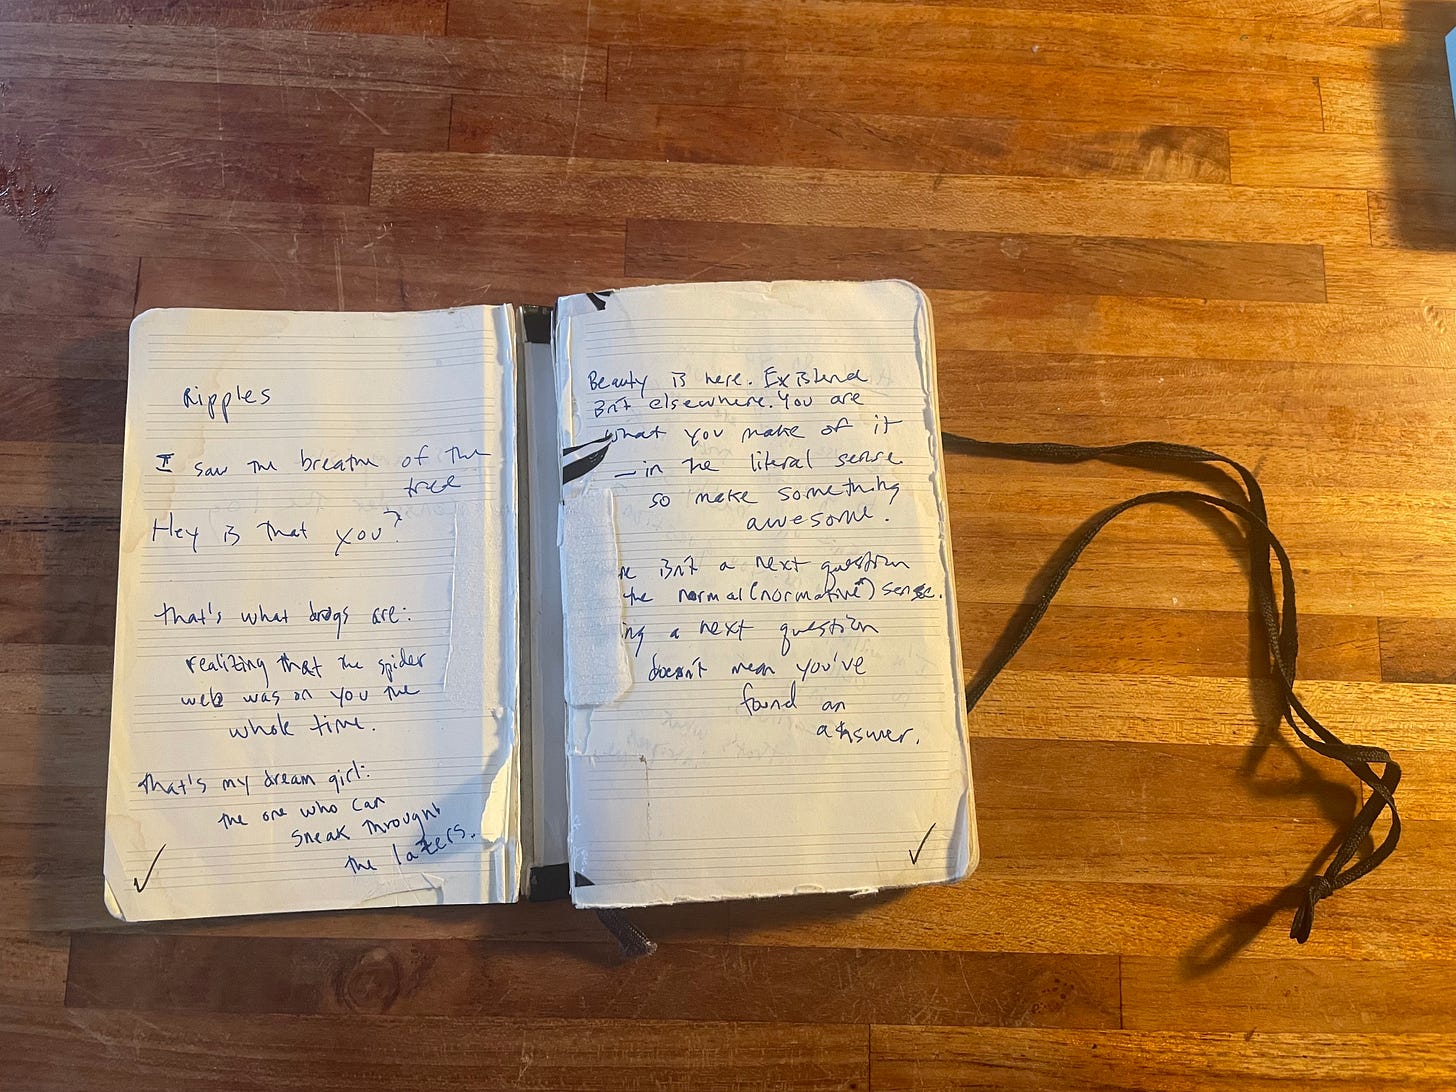 Ripples
I saw the breath of the
tree
Hey is that you?
that's what drugs are:
realizing that the spider
web was on you the
whole time.
that's my dream girl:
the one who can
sneak throught
the lazers.
Beauty is here. Existence
isn't elsewhere. You are
what you make of it
—in the literal sense
so make something
awesome.
isn't a next question
the normal (normative") sense.
ing a next question
doesn't mean you've
found an
answer.